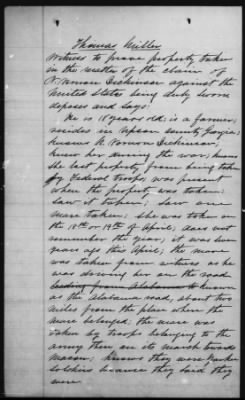 Thomas Miller
Witness to prove property taken
in the matter of the claim of
N. Vernon Dickinson against the
United States being duly sworn
deposes and says:
He is 18 years old: is a farmer,
resides in Upson County Georgia,
knows N. Vernon Dickinson;
knew her during the war; knows
she lost property from being taken
by Federal troops; was present
when the property was taken:
saw it taken; saw one
mare taken: she was taken on
the 18th or 19th of April, does not
remember the year; it was seven
years ago this April; the mare
was taken from witness as he
was driving her on the road
leading from Alabama to known
as the Alabama road, about two
miles from the place where the
mare belonged; the mare was
taken by troops belonging to the
army then on its march towards
Macon; knows they were Yankee
soldiers because they said they
were